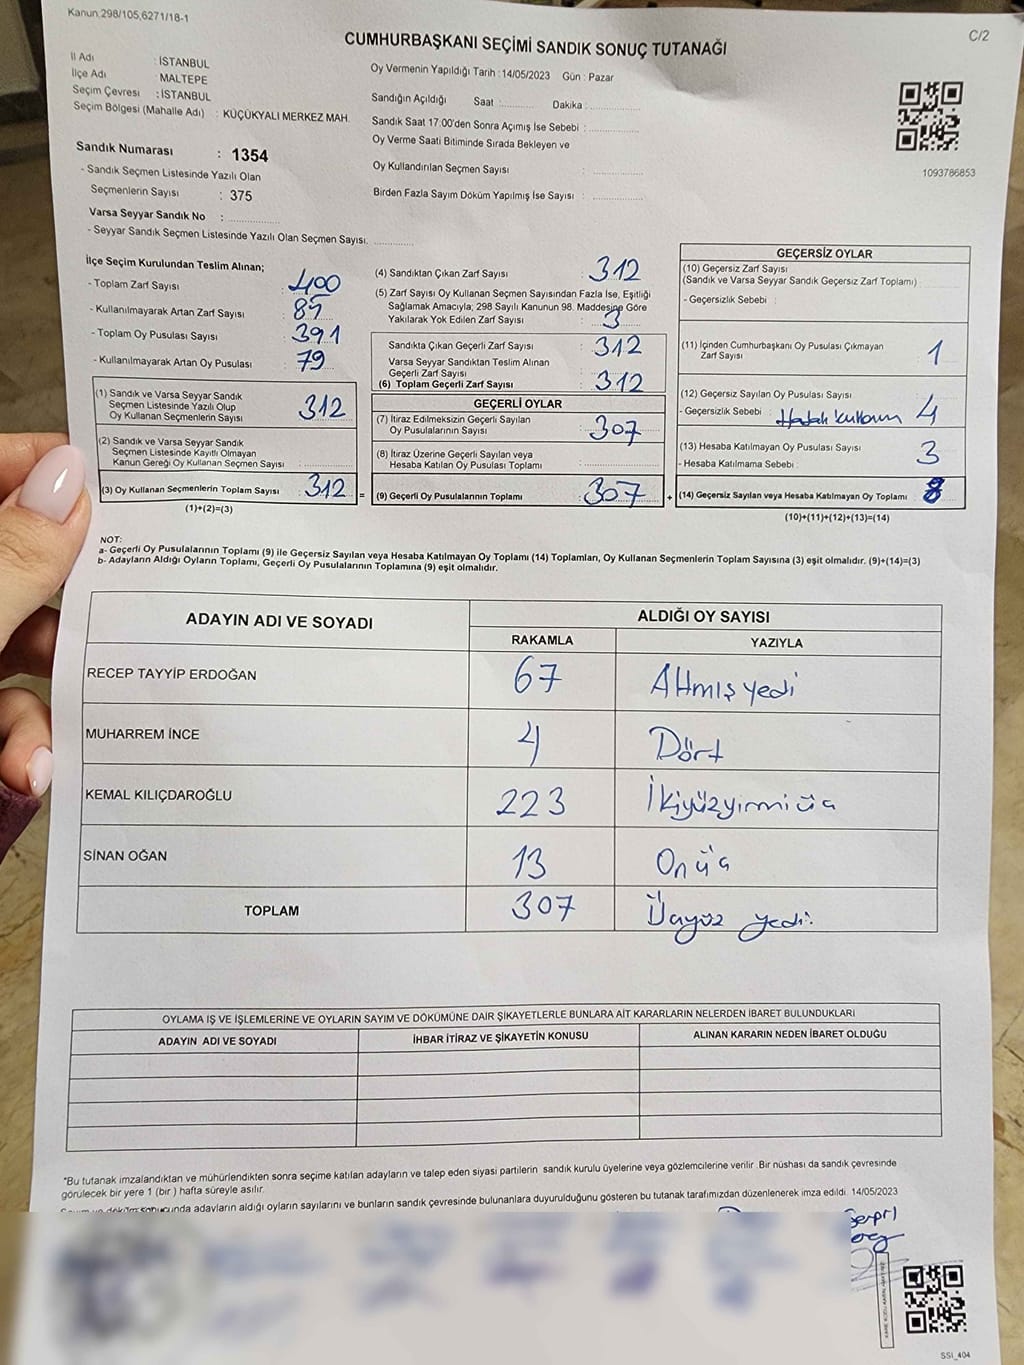 Kanun,298/105,6271/18-1
C/2
CUMHURBAŞKANI SEÇİMİ SANDIK SONUÇ TUTANAĞI
İl Adı : İSTANBUL
İlçe Adı : MALTEPE
Seçim Çevresi : İSTANBUL
Seçim Bölgesi (Mahalle Adı) : KÜÇÜKYALI MERKEZ MAH.
Sandık Numarası : 1354
- Sandık Seçmen Listesinde Yazılı Olan
Seçmenlerin Sayısı : 375
Varsa Seyyar Sandık No :
- Seyyar Sandık Seçmen Listesinde Yazılı Olan Seçmen Sayısı:
Oy Vermenin Yapıldığı Tarih : 14/05/2023 Gün : Pazar
Sandığın Açıldığı Saat : Dakika :
Sandık Saat 17:00'den Sonra Açımış İse Sebebi :
Oy Verme Saati Bitiminde Sırada Bekleyen ve
Oy Kullandırılan Seçmen Sayısı :
Birden Fazla Sayım Döküm Yapılmış İse Sayısı :
1093786853
İlçe Seçim Kurulundan Teslim Alınan;
- Toplam Zarf Sayısı : 400
- Kullanılmayarak Artan Zarf Sayısı : 85
- Toplam Oy Pusulası Sayısı : 391
- Kullanılmayarak Artan Oy Pusulası : 79
(1) Sandık ve Varsa Seyyar Sandık
Seçmen Listesinde Yazılı Olup
Oy Kullanan Seçmenlerin Sayısı : 312
(2) Sandık ve Varsa Seyyar Sandık
Seçmen Listesinde Kayıtlı Olmayan
Kanun Gereği Oy Kullanan Seçmen Sayısı :
(3) Oy Kullanan Seçmenlerin Toplam Sayısı : 312 =
(1)+(2)=(3)
(4) Sandıktan Çıkan Zarf Sayısı : 312
(5) Zarf Sayısı Oy Kullanan Seçmen Sayısından Fazla İse, Eşitliği
Sağlamak Amacıyla; 298 Sayılı Kanunun 98. Maddesine Göre
Yakılarak Yok Edilen Zarf Sayısı : 3
Sandıkta Çıkan Geçerli Zarf Sayısı : 312
Varsa Seyyar Sandıktan Teslim Alınan
Geçerli Zarf Sayısı :
(6) Toplam Geçerli Zarf Sayısı : 312
GEÇERLİ OYLAR
(7) İtiraz Edilmeksizin Geçerli Sayılan
Oy Pusulalarının Sayısı : 307
(8) İtiraz Üzerine Geçerli Sayılan veya
Hesaba Katılan Oy Pusulası Toplamı :
(9) Geçerli Oy Pusulalarının Toplamı : 307 +
GEÇERSİZ OYLAR
(10) Geçersiz Zarf Sayısı
(Sandık ve Varsa Seyyar Sandık Geçersiz Zarf Toplamı) :
- Geçersizlik Sebebi :
(11) İçinden Cumhurbaşkanı Oy Pusulası Çıkmayan
Zarf Sayısı 1
(12) Geçersiz Sayılan Oy Pusulası Sayısı :
- Geçersizlik Sebebi : Hatalı kullanım 4
(13) Hesaba Katılmayan Oy Pusulası Sayısı : 3
- Hesaba Katılmama Sebebi :
(14) Geçersiz Sayılan veya Hesaba Katılmayan Oy Toplamı : 8
(10)+(11)+(12)+(13)=(14)
NOT:
a- Geçerli Oy Pusulalarının Toplamı (9) ile Geçersiz Sayılan veya Hesaba Katılmayan Oy Toplamı (14) Toplamları, Oy Kullanan Seçmenlerin Toplam Sayısına (3) eşit olmalıdır. (9)+(14)=(3)
b- Adayların Aldığı Oyların Toplamı, Geçerli Oy Pusulalarının Toplamına (9) eşit olmalıdır.
ADAYIN ADI VE SOYADI ALDIĞI OY SAYISI
RAKAMLA YAZIYLA
RECEP TAYYİP ERDOĞAN 67 Altmışyedi
MUHARREM İNCE 4 Dört
KEMAL KILIÇDAROĞLU 223 İkiyüzyirmiüç
SİNAN OĞAN 13 Onüç
TOPLAM 307 Üçyüz yedi.
OYLAMA İŞ VE İŞLEMLERİNE VE OYLARIN SAYIM VE DÖKÜMÜNE DAİR ŞİKAYETLERLE BUNLARA AİT KARARLARIN NELERDEN İBARET BULUNDUKLARI
ADAYIN ADI VE SOYADI İHBAR İTİRAZ VE ŞİKAYETİN KONUSU ALINAN KARARIN NEDEN İBARET OLDUĞU
"Bu tutanak imzalandıktan ve mühürlendikten sonra seçime katılan adayların ve talep eden siyasi partilerin sandık kurulu üyelerine veya gözlemcilerine verilir .Bir nüshası da sandık çevresinde
görülecek bir yere 1 (bir ) hafta süreyle asılır.
adayların aldığı oyların sayılarını ve bunların sandık çevresinde bulunanlara duyurulduğunu gösteren bu tutanak tarafımızdan düzenlenerek imza edildi. 14/05/2023
SSI_404